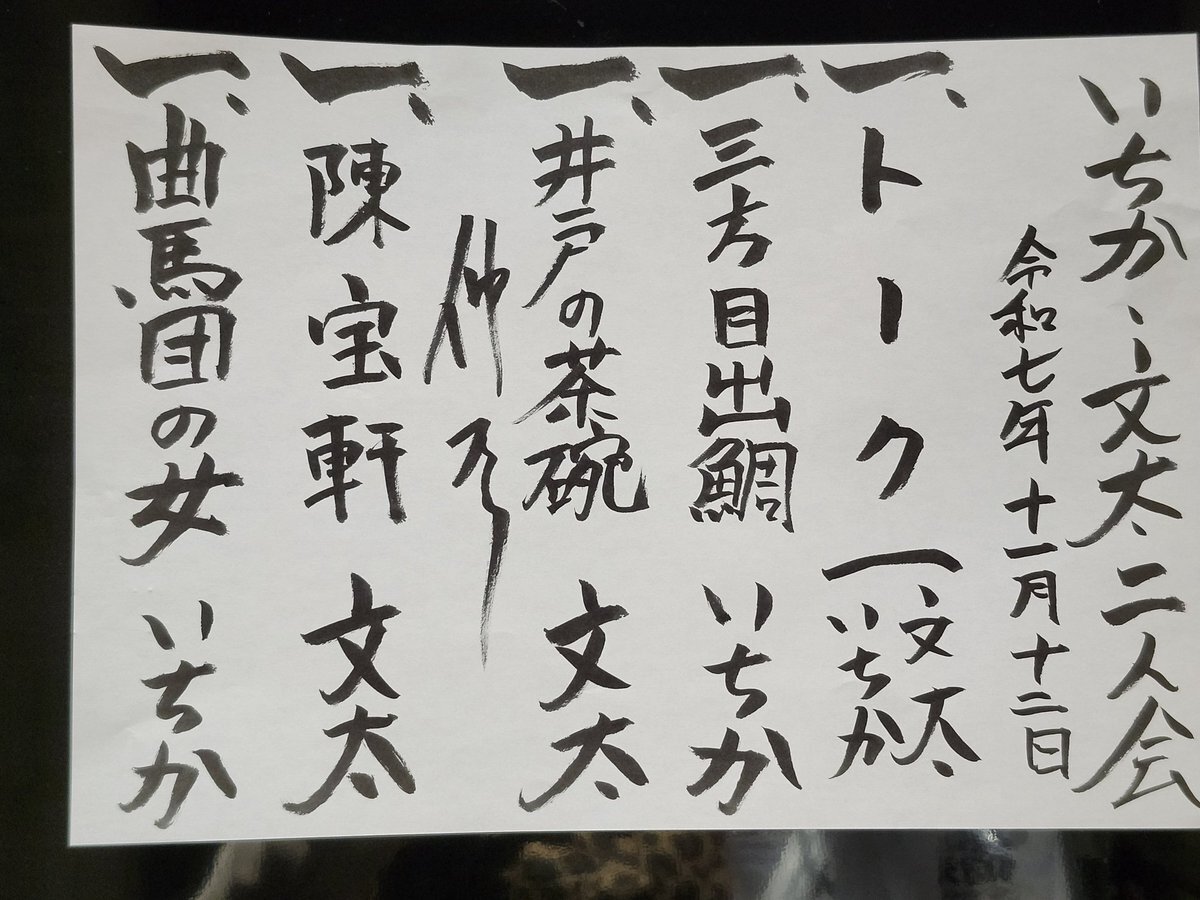 いちか、文太二人会
令和七年十一月十二日
一、トーク 文太 いちか
一、三方目出鯛 いちか
一、井戸の茶碗 文太
仲入
一、陳宝軒 文太
一、曲馬団の女 いちか